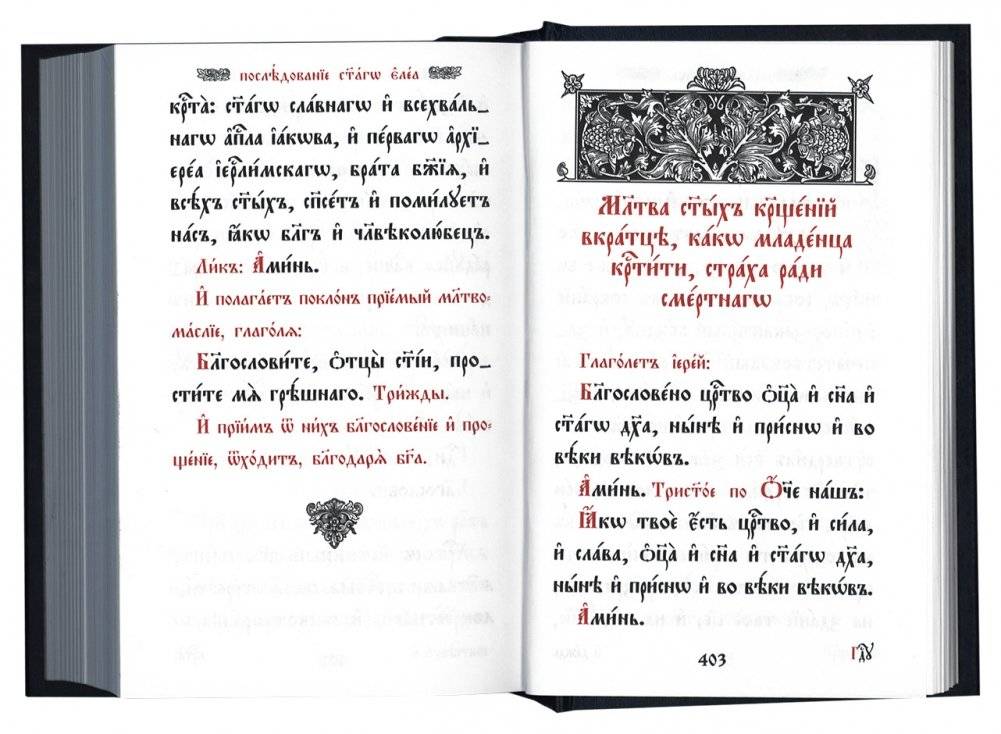 послѣ́дованїе ст҃а́гѡ є҆ле́а
крⷭ҇та̀: ст҃а́гѡ сла́внагѡ и҆ всехва́ль_
нагѡ а҆пⷭ҇ла і҆а́кѡва, и҆ пе́рвагѡ а҆рхї_
ере́а і҆ерⷭ҇ли́мскагѡ, бра́та бж҃їѧ, и҆
всѣ́хъ ст҃ы́хъ, сп҃се́тъ и҆ поми́лꙋетъ
на́съ, ꙗ҆́кѡ бл҃гъ и҆ чл҃вѣколю́бецъ.
Ли́къ: А҆ми́нь.
И҆ полага́етъ покло́нъ прїе́мый мл҃тво-
ма́слїе, глаго́лѧ:
Бл҃гослови́те, ѻ҆тцы̀ ст҃і́и, про_
сти́те мѧ̀ грѣ́шнаго. Три́жды.
И҆ прїи́мъ ѿ ни́хъ бл҃гослове́нїе и҆ про-
ще́нїе, ѿхо́дитъ, бл҃годарѧ̀ бг҃а.
Мл҃тва ст҃ы́хъ крⷭ҇ще́нїй
вкра́тцѣ, ка́кѡ младе́нца
крⷭ҇ти́ти, стра́ха ра́ди
сме́ртнагѡ
Глаго́летъ і҆ере́й:
Бл҃гослове́но црⷭ҇тво ѻ҆ц҃а̀ и҆ сн҃а и҆
ст҃а́гѡ дх҃а, ны́нѣ и҆ при́снѡ и҆ во
вѣ́ки вѣкѡ́въ.
А҆ми́нь. Трист҃о́е по Ѻ҆́ч҃е на́шъ:
Ꙗ҆́кѡ твоѐ є҆́сть црⷭ҇тво, и҆ си́ла,
и҆ сла́ва, ѻ҆ц҃а̀ и҆ сн҃а и҆ ст҃а́гѡ дх҃а,
ны́нѣ и҆ при́снѡ и҆ во вѣ́ки вѣкѡ́въ.
А҆ми́нь.
403
Гдⷭ҇ꙋ